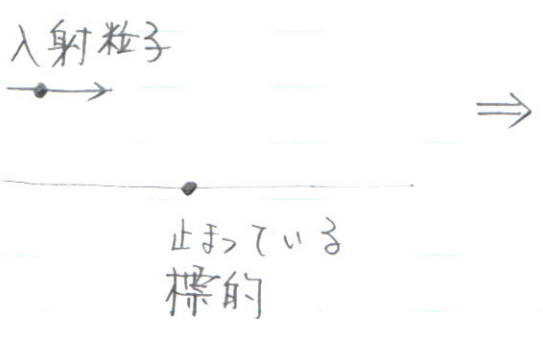 入射粒子
止まっている
標的